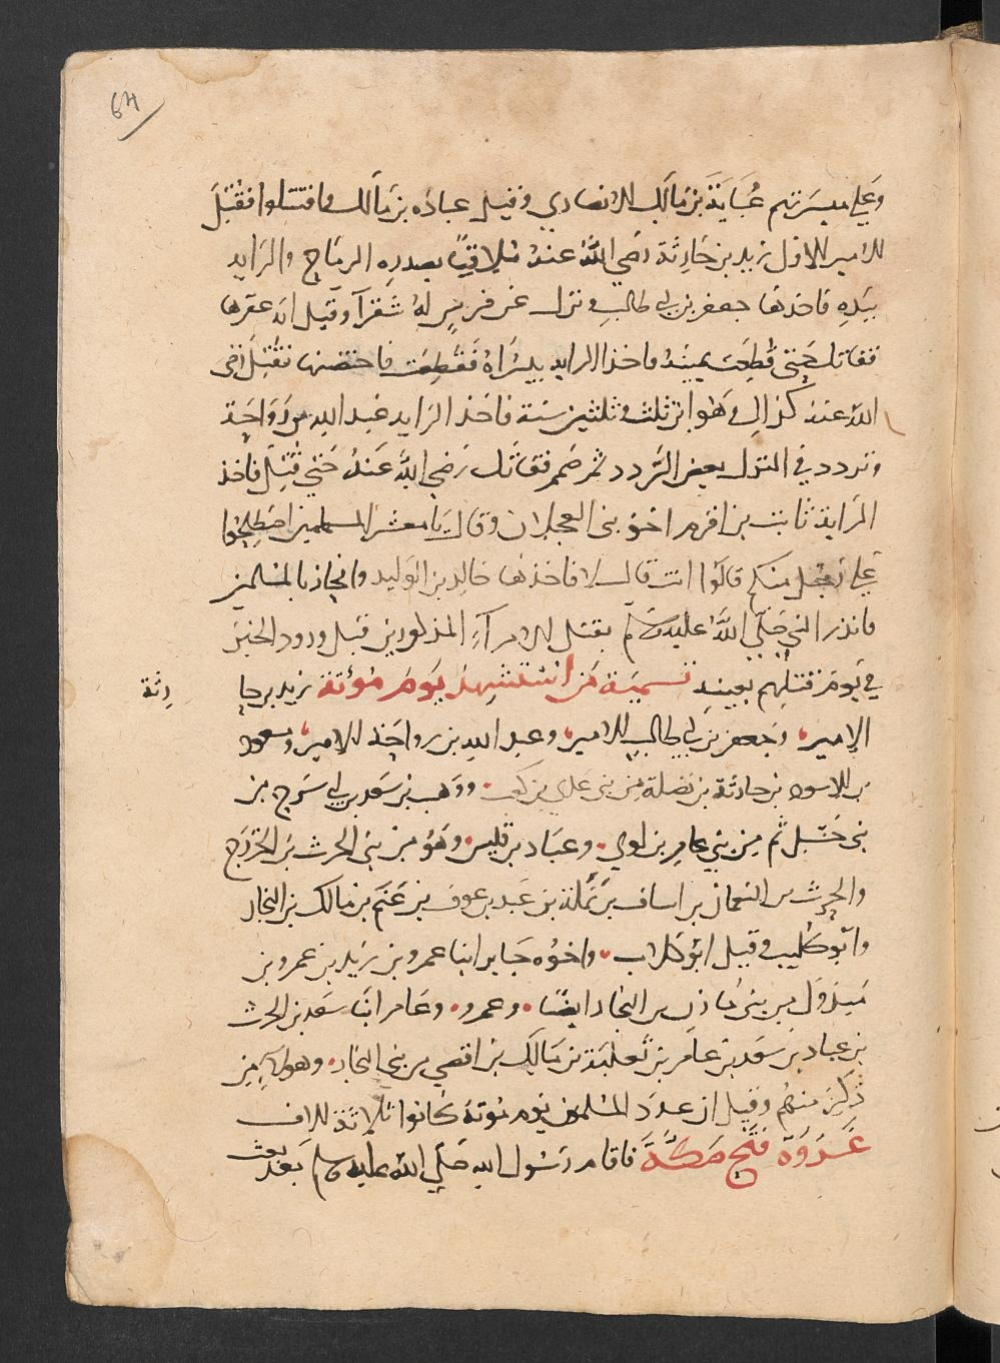 64
وعلي ميسرتهم عُبَايَةَ بن مَالِك الانصاري وقيل عباده بن مَالك فاقتتلوا فقُتِلَ
الامير الاول زيد بن حَارِثة رضي اللهُ عنهُ مُلاقيًا بصدرِهِ الرمَاح والرَايه
بيَدِهِ فاخذها جعفر بن ابي طالبٍ ونزل عن فرسٍ لهُ شقرآ وقيل انه عقرها
فقاتل حَتي قُطِعَت يمينهُ فاخذ الرايه بيسَرَاهُ فَقُطِعَت فاحتضنها فقُتِلَ رَضي
اللهُ عنهُ كذالِك وَهوَ ابن ثلث وثلثين سَنة فاخذ الرَايه عَبد الله بن رَوَاحَة
وتردد في النزول بعض التردد ثمر صَمم فقاتل رَضي اللهُ عَنهُ حَتي قُتِلَ فاخذ
الرَاية ثابت بن اقرم اخوُ بني العجلان وقال يَا معشر المسلمين اصْطلِحُوا
عَلي رَجُل منكم قالوُا انت قال لا فاخذها خالِد بن الوَليد وانحاز بالمسْلمين
فانذر النبي صَلّي اللّهُ عليه وسَلم بقتل الامرآءِ المذكورين قبل ورود الخبَر
في يَومَ قتلِهم بعينِهِ تسميَة مَن اسْتشهِدَ يَومَ مُؤتة زيد بن حا رثة
الامير، وجَعفر بن ابي طالبٍ الامير، وعبد الله بن رواحَة الامير، ومسعود
بن الاسود بن حارثة بن نضلة مِن بني عَدي بن كعب. ووَهب بن سَعد بن ابي سَرح من
بني حَسْل ثم مِن بني عامِر بن لوي. وعبَاد بن قيس. وَهوُ من بني الحرث بن الخزرَج
والحرِث بن النعمان بن اساف بن نَضلة بن عَبد بن عوف بن غَنَم بن مَالك بن النجار
وابُو كُليب وقيل ابُو كلاب. واخوُه جَابر ابنا عمرو بن زيَد بن عمرو بن
مَبذوُل من بني مَازن بن النجار ايضًا. وعمرو. وعَامر ابنَا سَعد بن الحرث
بن عباد بن سَعد بن عَامر بن ثعلبَة بن مَالِك بن افصي من بني النجار. وهولآءِ مَن
ذكِرَ منهُم وقيل ان عدَد المسْلمين يَوم مؤتة كانوا ثلاثةَ الاف
غَزوَة فَتح مَكَّةَ فاقامَ رَسُول الله صَلّي اللهُ عليه وسلم بَعدَ بعث